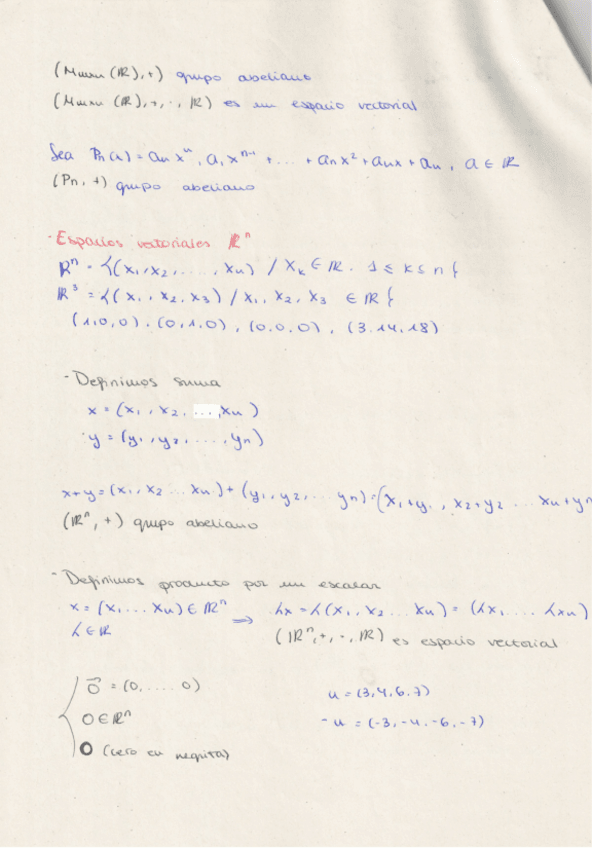 (Mmxn (ℝ), +) grupo abeliano
(Mmxn (ℝ), +, ·, ℝ) es un espacio vectorial
Sea Pn(x) = a₀xⁿ, a₁xⁿ⁻¹ + ... + anx² + anx + an, a ∈ ℝ
(Pn, +) grupo abeliano
· Espacios vectoriales ℝⁿ
ℝⁿ = {(x₁, x₂, ..., xn) / xk ∈ ℝ. 1 ≤ k ≤ n{
ℝ³ = {(x₁, x₂, x₃) / x₁, x₂, x₃ ∈ ℝ{
(1,0,0), (0,1,0), (0,0,0), (3,14,18)
- Definimos suma
x = (x₁, x₂, ..., xn)
y = (y₁, y₂, ..., yn)
x+y = (x₁, x₂ ... xn) + (y₁, y₂, ... yn) = (x₁+y₁, x₂+y₂ ... xn+yn
(ℝⁿ, +) grupo abeliano
- Definimos producto por un escalar
x = (x₁ ... xn) ∈ ℝⁿ ⇒ λx = λ(x₁, x₂ ... xn) = (λx₁, ... λxn)
λ ∈ ℝ
(ℝⁿ, +, ·, ℝ) es espacio vectorial
0⃗ = (0, .... 0)
0 ∈ ℝⁿ
0 (cero en negrita)
u = (3,4,6,7)
-u = (-3,-4,-6,-7)